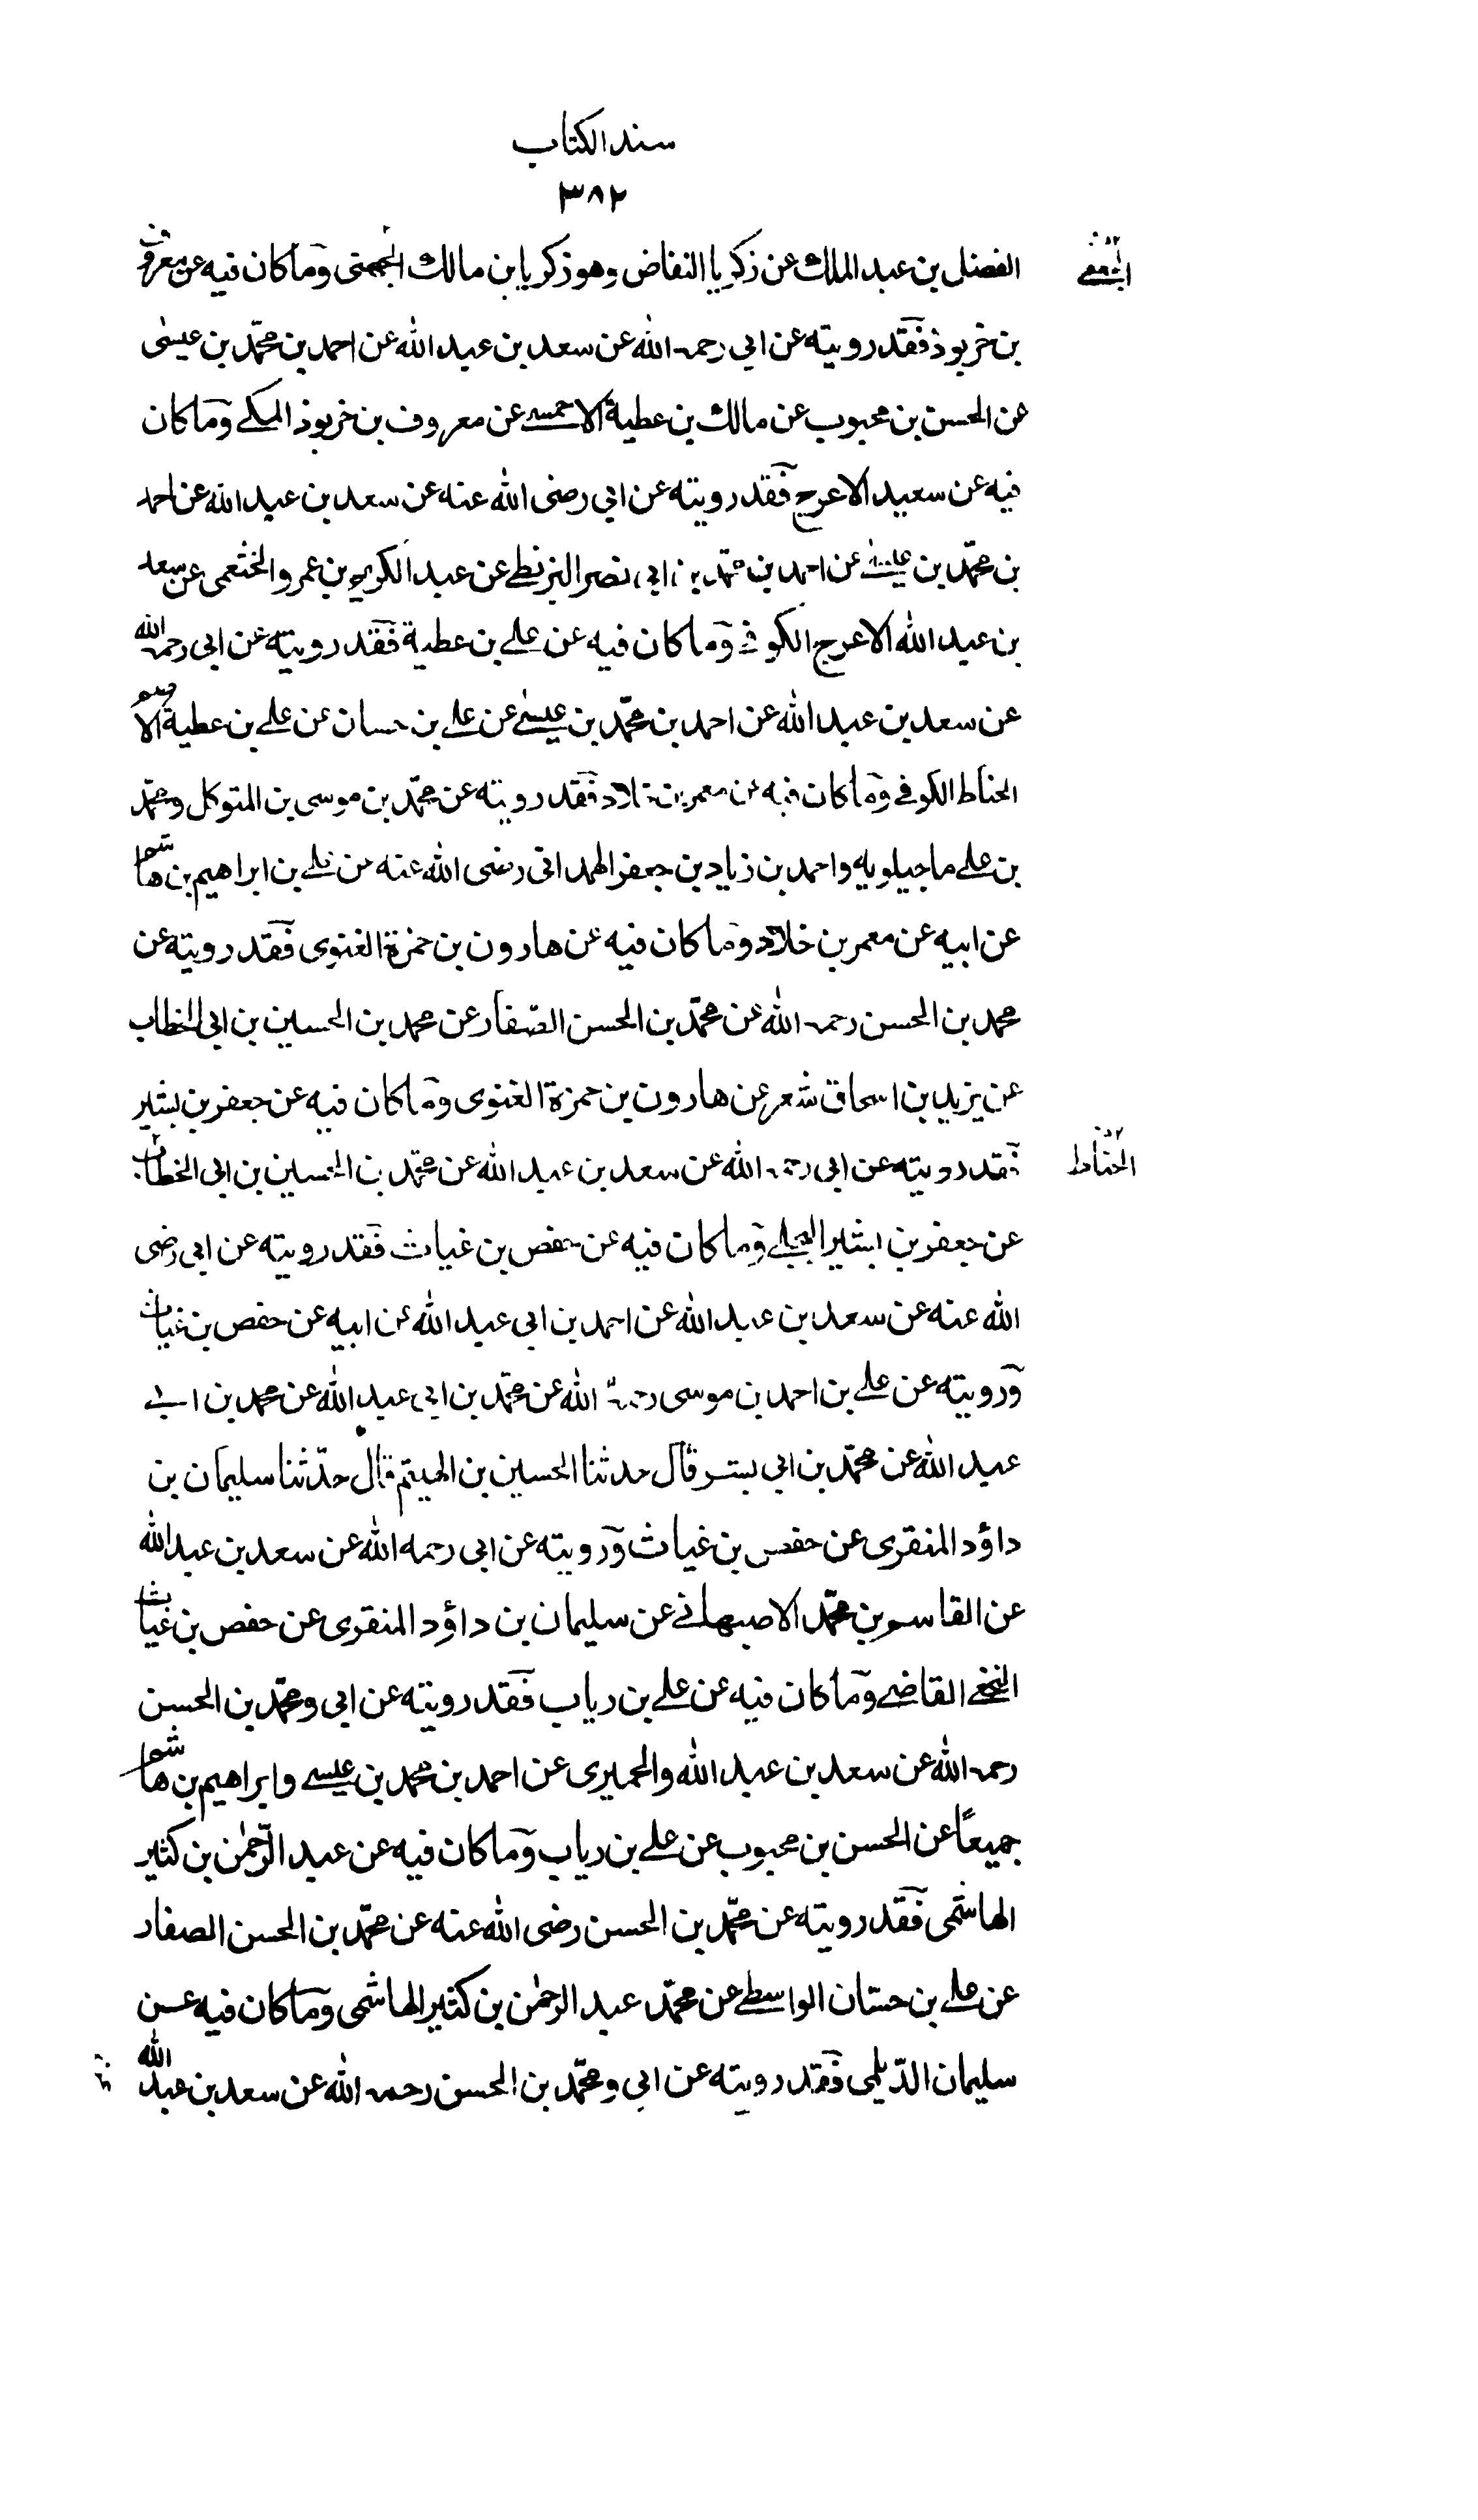 سند الكتاب
٣٨٢
الفضل بن عبد الملك عن زكريا النفاض وهو زكريا بن مالك الجهمنى وما كان فيه عن معروف
بن خربوذ فقد رويته عن ابى رحمه الله عن سعد بن عبد الله عن احمد بن محمّد بن عيسىٰ
عن الحسن بن محبوب عن مالك بن عطية الاحمسے عن معروف بن خربوذ المكے وما كان
فيه عن سعيد الاعرج فقد رويته عن ابى رضى الله عنه عن سعد بن عبد الله عن احمد
بن محمّد بن عيسے عن احمد بن محمّد بن ابى نصر البزنطے عن عبد الكريم بن عمرو الخثعمى عن سعد
بن عبد الله الاعرج الكوفے وما كان فيه عن علے بن عطية فقد رويته عن ابى رحمه الله
عن سعد بن عبد الله عن احمد بن محمّد بن عيسے عن علے بن حسان عن علے بن عطية الاصم
الحناط الكوفے وما كان فيه عن معمر بن خلاد فقد رويته عن محمّد بن موسى بن المتوكل ومحمّد
بن علے ماجيلويه واحمد بن زياد بن جعفر الهمدانى رضى الله عنه عن علے بن ابراهيم بن هاشم
عن ابيه عن معمر بن خلاد وما كان فيه عن هارون بن حمزة الغنوى فقد رويته عن
محمد بن الحسن رحمه الله عن محمّد بن الحسن الصّفار عن محمد بن الحسين بن ابى الخطاب
عن يزيد بن اسحاق شعر عن هارون بن حمزة الغنوى وما كان فيه عن جعفر بن بشير
فقد رويته عن ابى رحمه الله عن سعد بن عبد الله عن محمّد بن الحسين بن ابى الخطاب
عن جعفر بن بشير البجلے وما كان فيه عن حفص بن غياث فقد رويته عن ابى رضى
الله عنه عن سعد بن عبد الله عن احمد بن ابى عبد الله عن ابيه عن حفص بن غياث
ورويته عن علے بن احمد بن موسى رحمه الله عن محمّد بن ابى عبد الله عن محمد بن ابے
عبد الله عن محمّد بن ابى بشر قال حدثنا الحسين بن الهيثم قال حدّثنا سليمان بن
داؤد المنقرى عن حفص بن غياث ورويته عن ابى رحمه الله عن سعد بن عبد الله
عن القاسم بن محمّد الاصبهانے عن سليمان بن داؤد المنقرى عن حفص بن غياث
النخعے القاضے وما كان فيه عن علے بن رياب فقد رويته عن ابى ومحمّد بن الحسن
رحمه الله عن سعد بن عبد الله والحميرى عن احمد بن محمد بن عيسے وابراهيم بن هاشم
جميعًا عن الحسن بن محبوب عن علے بن رياب وما كان فيه عن عبد الرّحمٰن بن كثير
الهاشمى فقد رويته عن محمّد بن الحسن رضى الله عنه عن محمّد بن الحسن الصفار
عن علے بن حسّان الواسطے عن محمّد عبد الرحمٰن بن كثير الهاشمى وما كان فيه عن
سليمان الدّيلمى فقد رويته عن ابى ومحمّد بن الحسن رحمه الله عن سعد بن عبد الله
الحنّاط